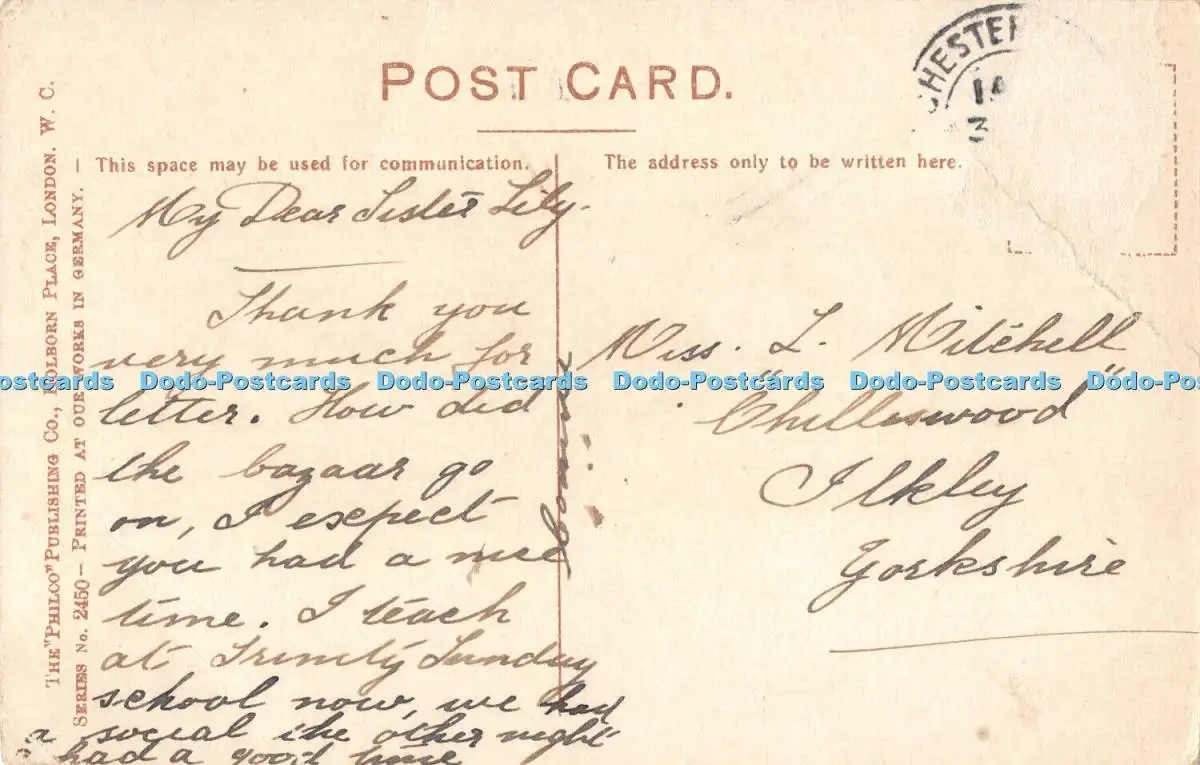 POST CARD.
CHESTER
14
3
This space may be used for communication.
The address only to be written here.
THE "PHILCO" PUBLISHING Co., HOLBORN PLACE, LONDON. W. C.
SERIES No. 2450 – PRINTED AT OUR WORKS IN GERMANY. –
My Dear Sister Lily.
Thank you
very much for
letter. How did
the bazaar go
on, I expect
you had a nice
time. I teach
at Trinity Sunday
school now, we had
a social the other night
had a good time
Miss. L. Mitchell
Ilkley
Yorkshire
Dodo-Postcards Dodo-Postcards Dodo-Postcards Dodo-Postcards Dodo-Postcards